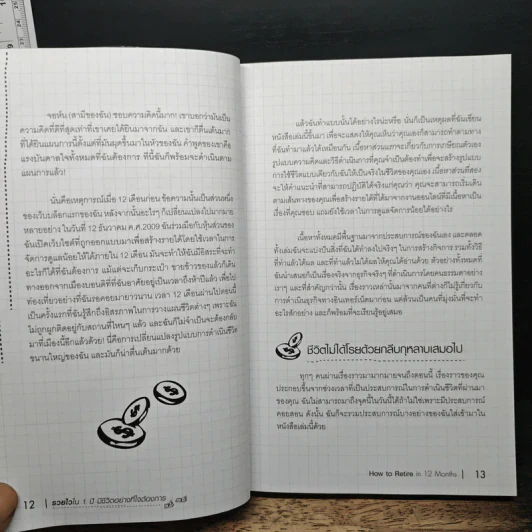 จอห์น (สามีของฉัน) ชอบความคิดนี้มาก! เขาบอกว่ามันเป็น
ความคิดที่ดีที่สุดเท่าที่เขาเคยได้ยินมาจากฉัน และเขาก็ตื่นเต้นมาก
ที่ได้ยินแผนการนี้ตั้งแต่ที่มันผุดขึ้นมาในหัวของฉัน คำพูดของเขาคือ
แรงบันดาลใจทั้งหมดที่ฉันต้องการ ทีนี้ฉันก็พร้อมจะดำเนินตาม
แผนการแล้ว!
นั่นคือเหตุการณ์เมื่อ 12 เดือนก่อน ข้อความนั้นเป็นส่วนหนึ่ง
ของเว็บบล็อกแรกของฉัน หลังจากนั้นอะไรๆ ก็เปลี่ยนแปลงไปมากมาย
หลายอย่าง ในวันที่ 12 ธันวาคม ค.ศ.2009 ฉันร่วมมือกับหุ้นส่วนของ
ฉันเปิดเว็บไซต์ที่ถูกออกแบบมาเพื่อสร้างรายได้โดยใช้เวลาในการ
จัดการดูแลน้อยให้ได้ภายใน 12 เดือน มันจะทำให้ฉันมีอิสระที่จะทำ
อะไรก็ได้ที่ฉันต้องการ แม้แต่จะเก็บกระเป๋า ขายข้าวของแล้วก็เดิน
ทางออกจากเมืองบอนดีที่ที่ฉันอาศัยอยู่เป็นเวลาถึงห้าปีแล้ว เพื่อไป
ท่องเที่ยวอย่างที่ฉันรอคอยมายาวนาน เวลา 12 เดือนผ่านไปตอนนี้
เป็นครั้งแรกที่ฉันรู้สึกถึงอิสรภาพในการวางแผนชีวิตต่างๆ เพราะฉัน
ไม่ถูกผูกติดอยู่กับสถานที่ไหนๆ แล้ว และฉันก็ไม่จำเป็นจะต้องกลับ
มาที่เมืองนี้อีกแล้วด้วย! นี่คือการเปลี่ยนแปลงรูปแบบการดำเนินชีวิต
ขนานใหญ่ของฉัน และมันก็น่าตื่นเต้นมากด้วย
12 | รวยไวใน 1 ปี มีชีวิตอย่างที่ใจต้องการ
แล้วฉันทำแบบนั้นได้อย่างไรน่ะหรือ นั่นก็เป็นเหตุผลที่ฉันเขียน
หนังสือเล่มนี้ขึ้นมา เพื่อจะแสดงให้คุณเห็นว่าคุณเองก็สามารถทำตามทาง
ที่ฉันทำมาแล้วได้เหมือนกัน เนื้อหาส่วนแรกจะเกี่ยวกับการเกษียณตัวเอง
รูปแบบความคิดและวิธีดำเนินการที่คุณจำเป็นต้องทำเพื่อจะสร้างรูปแบบ
การใช้ชีวิตแบบเดียวกับฉันให้เป็นจริงในชีวิตของคุณเอง เนื้อหาส่วนที่สอง
จะให้คำแนะนำที่สามารถปฏิบัติได้จริงแก่คุณว่า คุณจะสามารถเริ่มเดิน
ตามเส้นทางของคุณเพื่อสร้างรายได้ที่มาจากงานออนไลน์ที่มีเนื้อหาเป็น
เรื่องที่คุณชอบ แถมยังใช้เวลาในการดูแลจัดการน้อยได้อย่างไร
เนื้อหาทั้งหมดมีพื้นฐานมาจากประสบการณ์ของฉันเอง และตลอด
ทั้งเล่มฉันจะแบ่งปันสิ่งที่ฉันได้ทำลงไปจริงๆ ในการสร้างกิจการ รวมทั้งวิธี
ที่ทำแล้วได้ผล และที่ทำแล้วไม่ได้ผลให้คุณได้อ่านด้วย ตัวอย่างทั้งหมดที่
ฉันนำเสนอก็เป็นเรื่องจริงจากธุรกิจจริงๆ ที่ดำเนินการโดยคนธรรมดาอย่าง
เราๆ และที่สำคัญกว่านั้น เรื่องราวเหล่านั้นมาจากคนที่ต่างก็ไม่รู้เกี่ยวกับ
การดำเนินธุรกิจทางอินเทอร์เน็ตมาก่อน แต่ล้วนเป็นคนที่มุ่งมั่นที่จะทำ
อะไรสักอย่าง และก็พร้อมที่จะเรียนรู้อยู่เสมอ
ชีวิตไม่ได้โรยด้วยกลีบกุหลาบเสมอไป
ทุกๆ คนผ่านเรื่องราวมามากมายจนถึงตอนนี้ เรื่องราวของคุณ
ประกอบขึ้นจากช่วงเวลาที่เป็นประสบการณ์ในการดำเนินชีวิตที่ผ่านมา
ของคุณ ฉันไม่สามารถมาถึงจุดนี้ในวันนี้ได้ถ้าไม่ใช่เพราะมีประสบการณ์
คอยสอน ดังนั้น ฉันก็จะรวมประสบการณ์บางอย่างของฉันใส่เข้ามาใน
หนังสือเล่มนี้ด้วย
How to Retire in 12 Months | 13